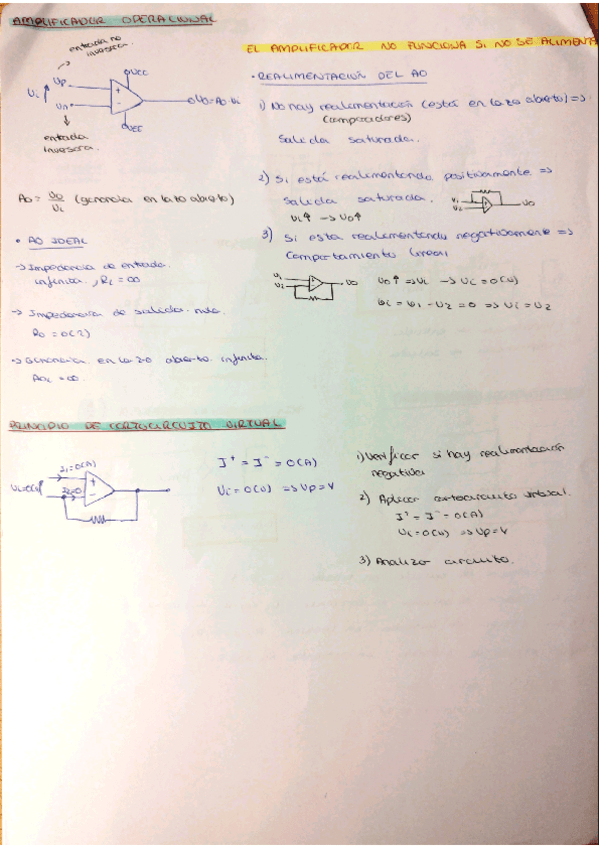 AMPLIFICADOR OPERACIONAL
entrada no
inversora.
Ui
Up
Un
UCC
Uo = Ao·Ui
UCC
entrada
inversora.
Ao = Uo/Ui (ganancia en lazo abierto)
• AO IDEAL
-> Impedancia de entrada
infinita, Ri = ∞
-> Impedancia de salida nula
Ro = 0(Ω)
-> Ganancia en lazo abierto infinita.
= ∞
EL AMPLIFICADOR NO FUNCIONA SI NO SE ALIMENTA
• REALIMENTACIÓN DEL AO
1) No hay realimentación (está en lazo abierto) =>
(comparadores)
Salida saturada.
2) Si está realimentando positivamente =>
Salida saturada.
Ui↑ -> Uo↑
U1
U2
UO
3) Si esta realimentando negativamente =>
Comportamiento lineal
U1
U2
UO
Uo↑ => Ui -> Ui = 0(V)
Ui = U1 - U2 = 0 => U1 = U2
PRINCIPIO DE CORTOCIRCUITO VIRTUAL
I=0(A)
Ui=0(V)
I=0
I⁺ = I⁻ = 0(A)
Ui = 0(V) => Up = V
1) Verificar si hay realimentación
negativa
2) Aplicar cortocircuito virtual.
I⁺ = I⁻ = 0(A)
Ui = 0(V) => Up = V
3) Analizo circuito.